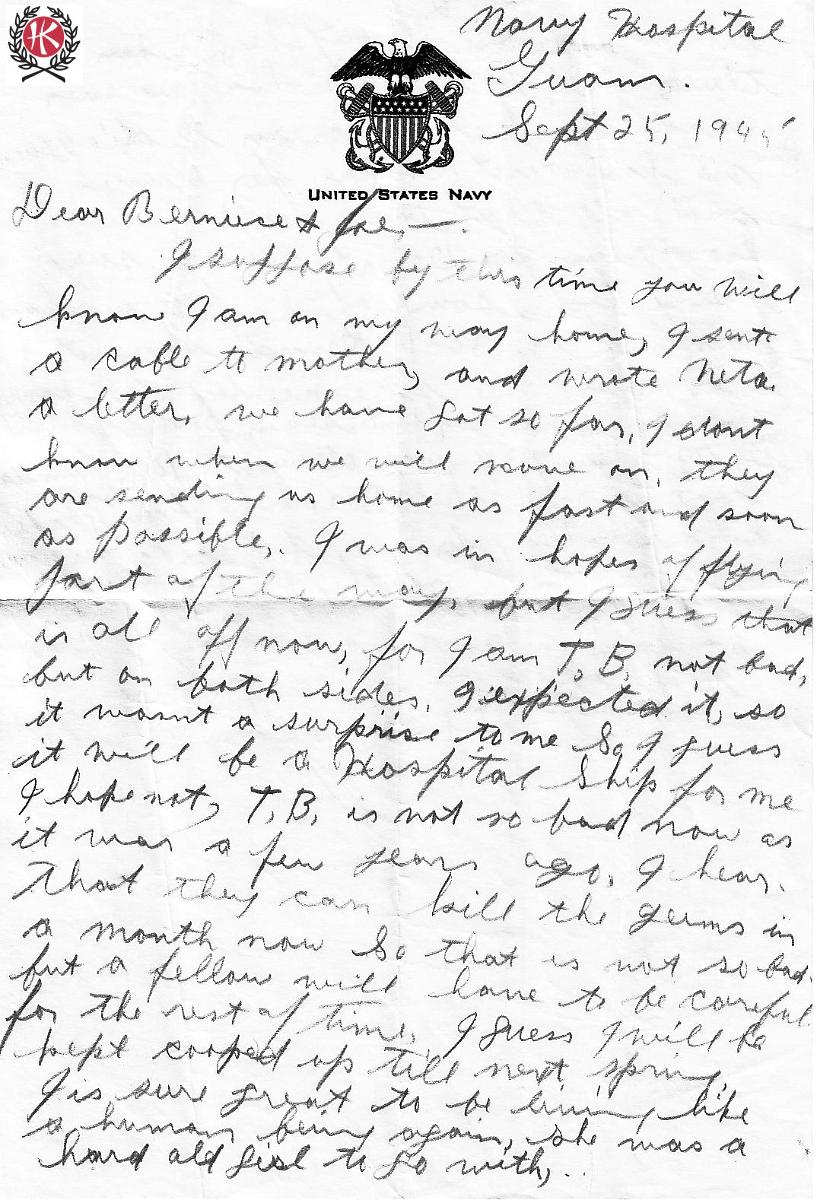 HK
Navy Hospital
Guam.
Sept 25, 1945
UNITED STATES NAVY
Dear Berniece & Joe, —.
I suppose by this time you will
know I am on my way home, I sent
a cable to mother, and wrote Neta
a letter. we have got so far, I dont
know when we will move on, they
are sending us home as fast and soon
as possible,. I was in hopes of flying
part of the way, but I guess that
is all off now, for I am T.B. not bad,
but on both sides. I expected it, so
it wasnt a surprise to me So I guess
it will be a Hospital Ship for me
I hope not, T.B. is not so bad now as
it was a few years ago, I hear.
that they can kill the germs in
a month now So that is not so bad.
but a fellow will have to be careful
for the rest of time. I guess I will be
kept cooped up till next spring,
I is sure great to be living like
a human being again, she was a
hard old girl to go with,..